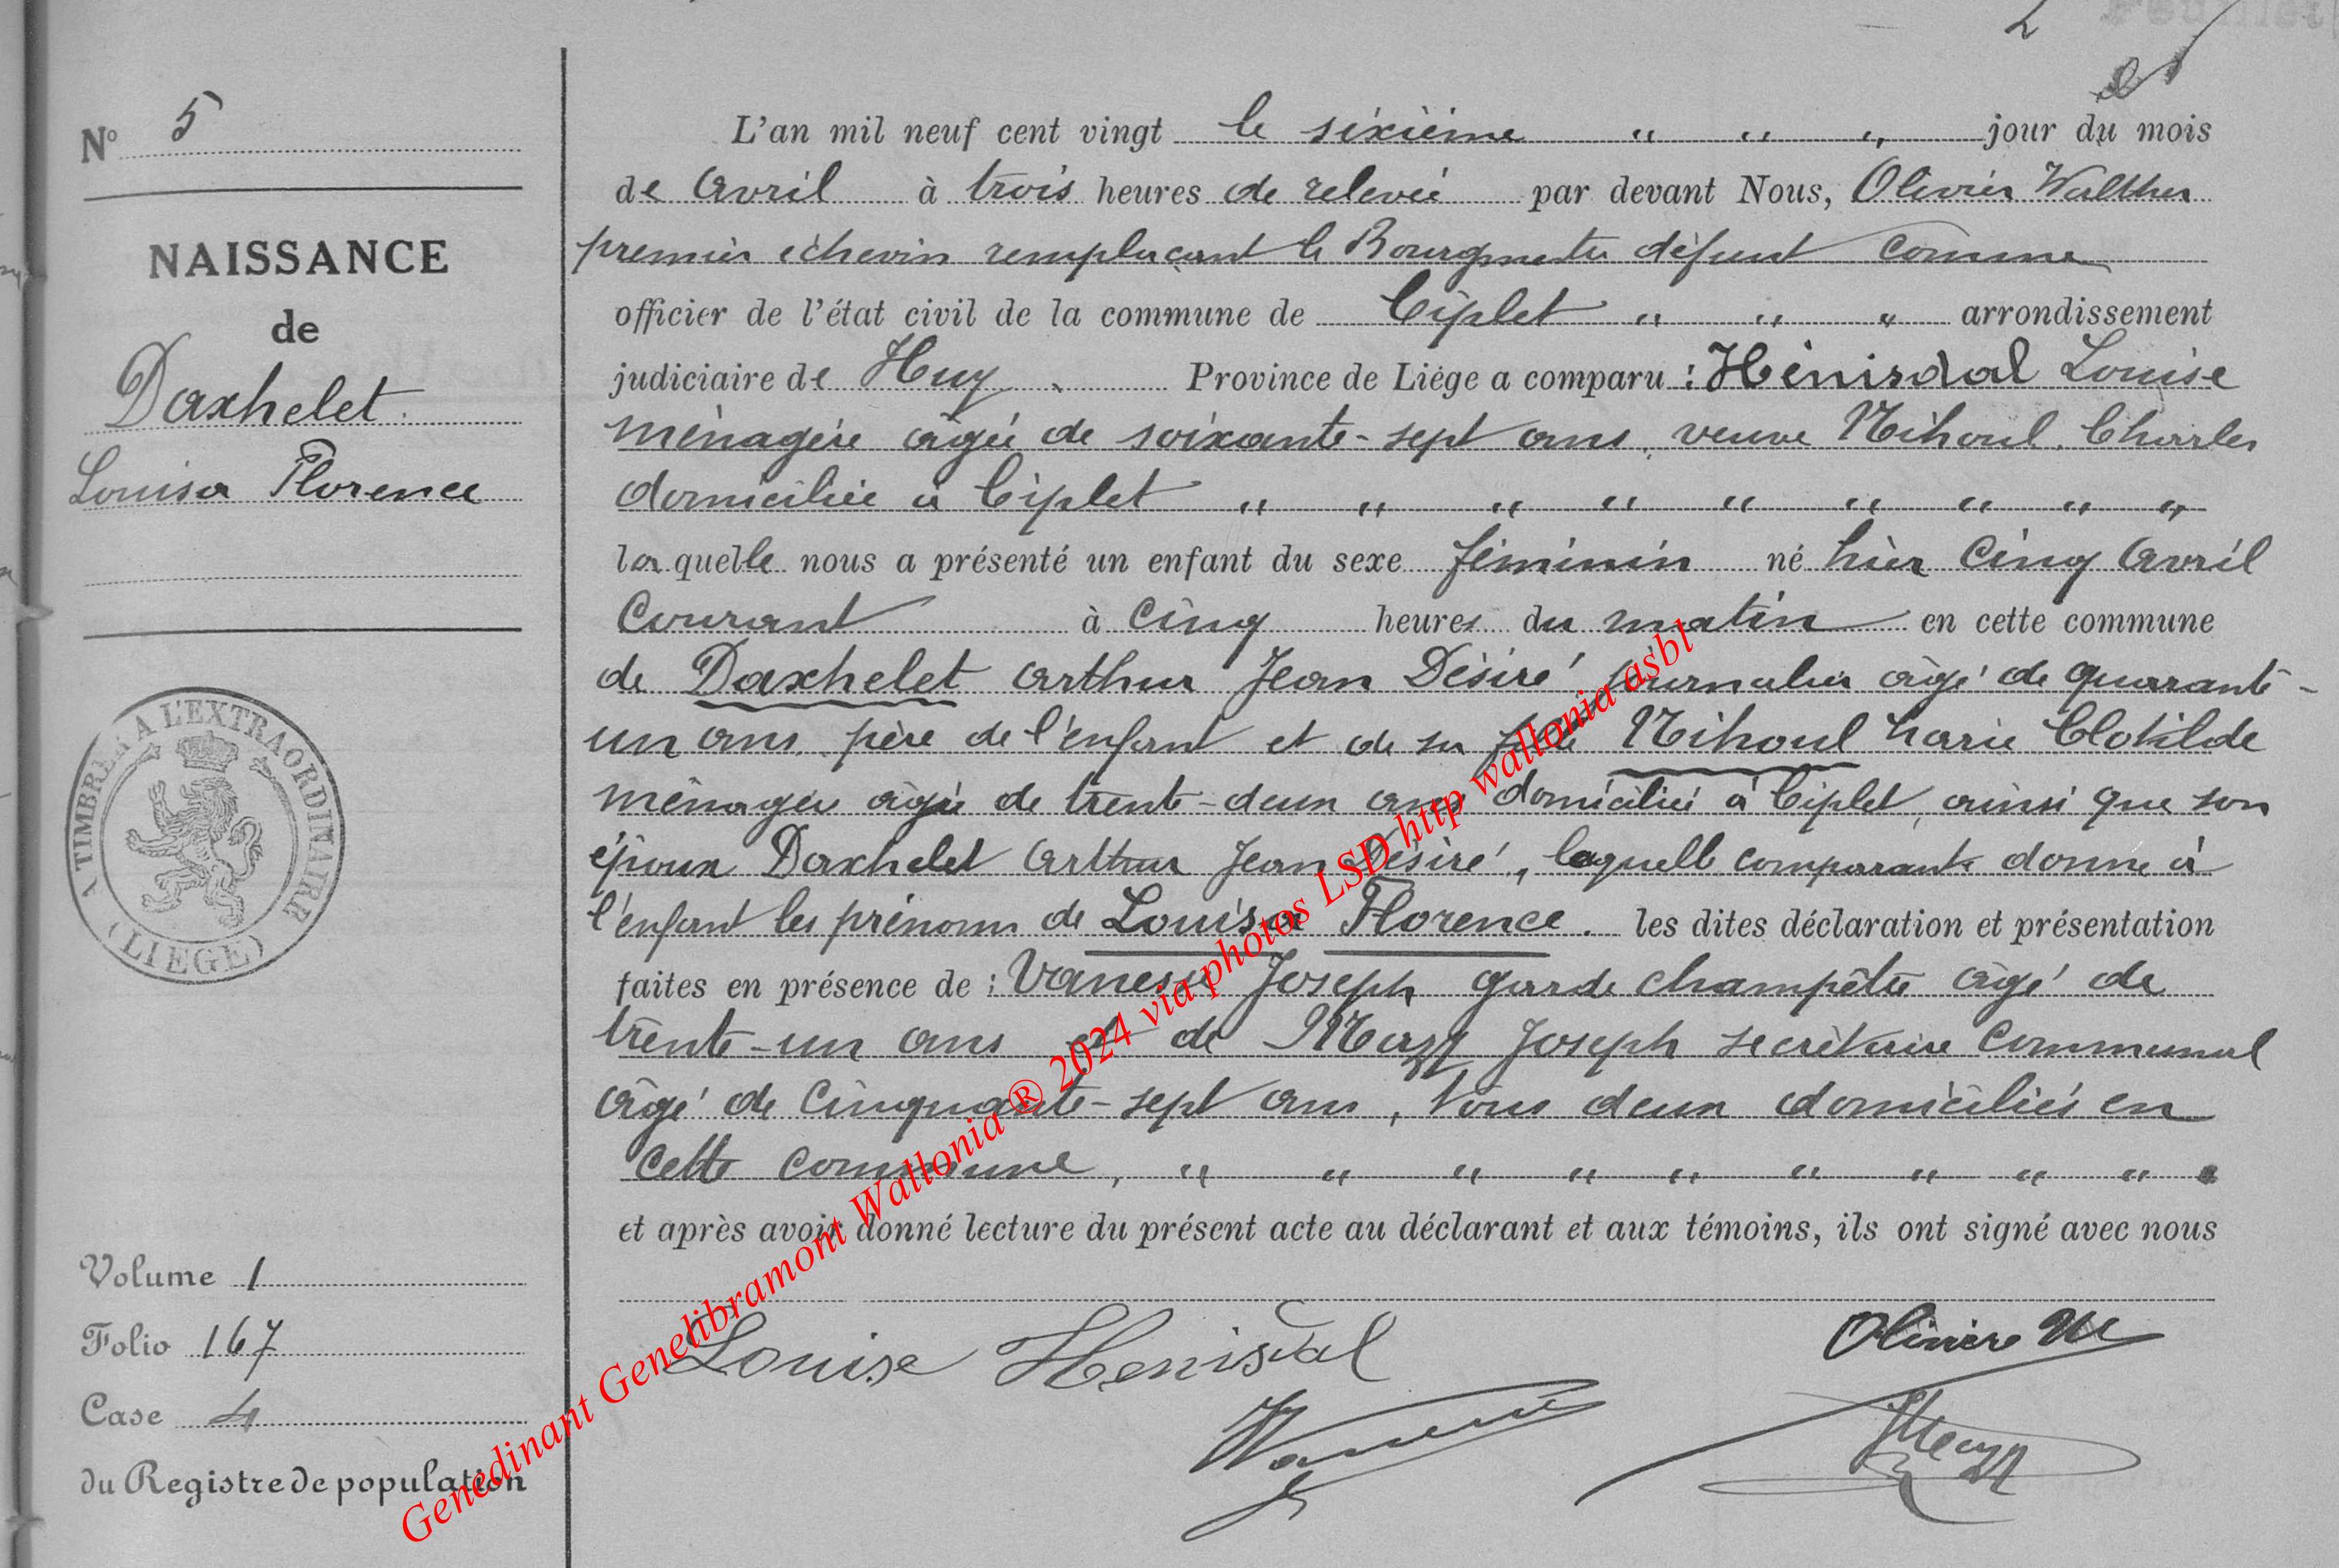 2
Feuillet
N° 5
NAISSANCE
de
Daxhelet
Louisa Florence
A TIMBRER A L'EXTRAORDINAIRE
(LIEGE)
Volume 1
Folio 167
Case 4
du Registre de population
L'an mil neuf cent vingt le sixième " " " jour du mois
de Avril à trois heures de relevée par devant Nous, Olivier Walther
premier échevin remplaçant le Bourgmestre défunt comme
officier de l'état civil de la commune de Ciplet " " " arrondissement
judiciaire de Huy Province de Liége a comparu : Hénisdal Louise
ménagère âgée de soixante-sept ans, veuve Mihoul Charles
domiciliée à Ciplet " " " " " " " " "
laquelle nous a présenté un enfant du sexe féminin né hier cinq Avril
courant à cinq heures du matin en cette commune
de Daxhelet Arthur Jean Désiré journalier âgé de quarante-
un ans, père de l'enfant et de sa fille Mihoul Marie Clotilde
ménagère âgée de trente-deux ans domiciliée à Ciplet, ainsi que son
époux Daxhelet Arthur Jean Désiré, laquelle comparante donne à
l'enfant les prénoms de Louisa Florence. les dites déclaration et présentation
faites en présence de : Joseph garde champêtre âgé de
trente-un ans et de Joseph secrétaire communal
âgé de cinquante-sept ans, tous deux domiciliés en
cette commune, " " " " " " " " "
et après avoir donné lecture du présent acte au déclarant et aux témoins, ils ont signé avec nous
Louise Henisdal
Genedinant Genelibramont Wallonia ® 2024 via photos LSD http wallonia asbl